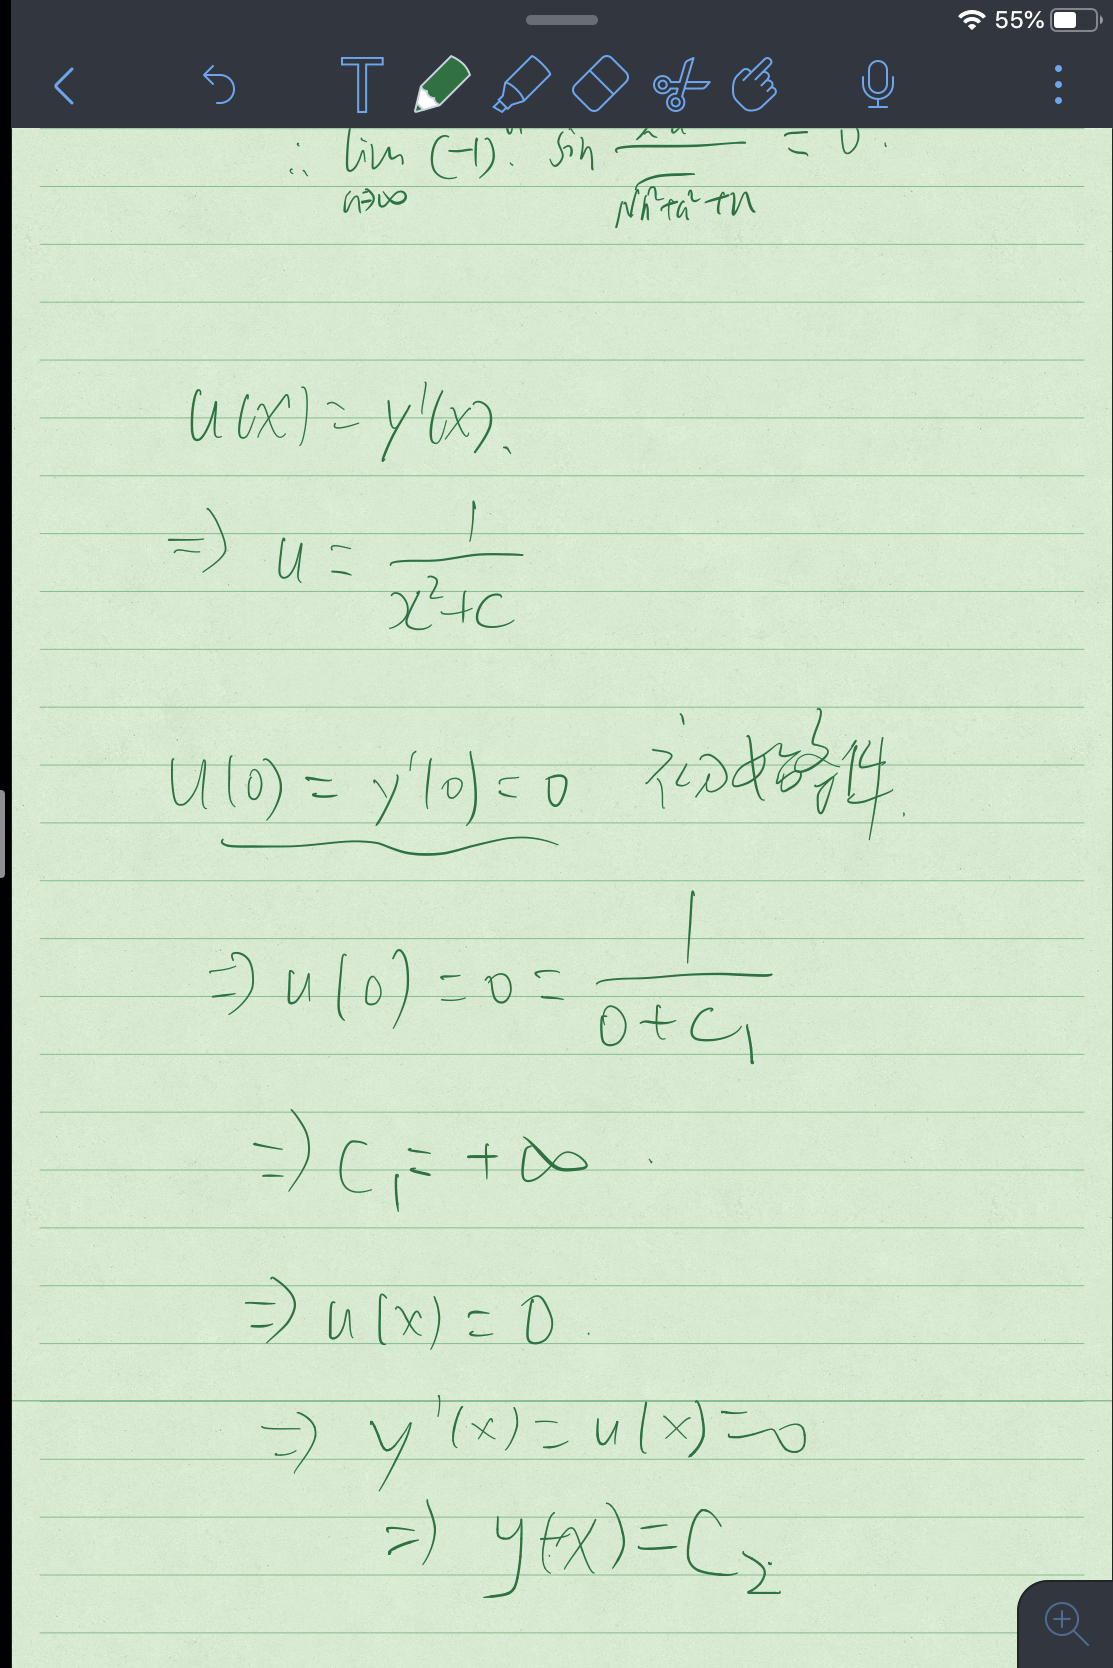 55%
T
∴ lim (-1)ⁿ · sin ─── = 0.
n→∞ √n²+a² +n
u(x) = y'(x).
⇒ u = 1/(x²+C)
u(0) = y'(0) = 0 初始条件.
⇒ u(0) = 0 = 1/(0+C₁)
⇒ C₁ = +∞.
⇒ u(x) = 0.
⇒ y'(x) = u(x) = 0
⇒ y(x) = C₂